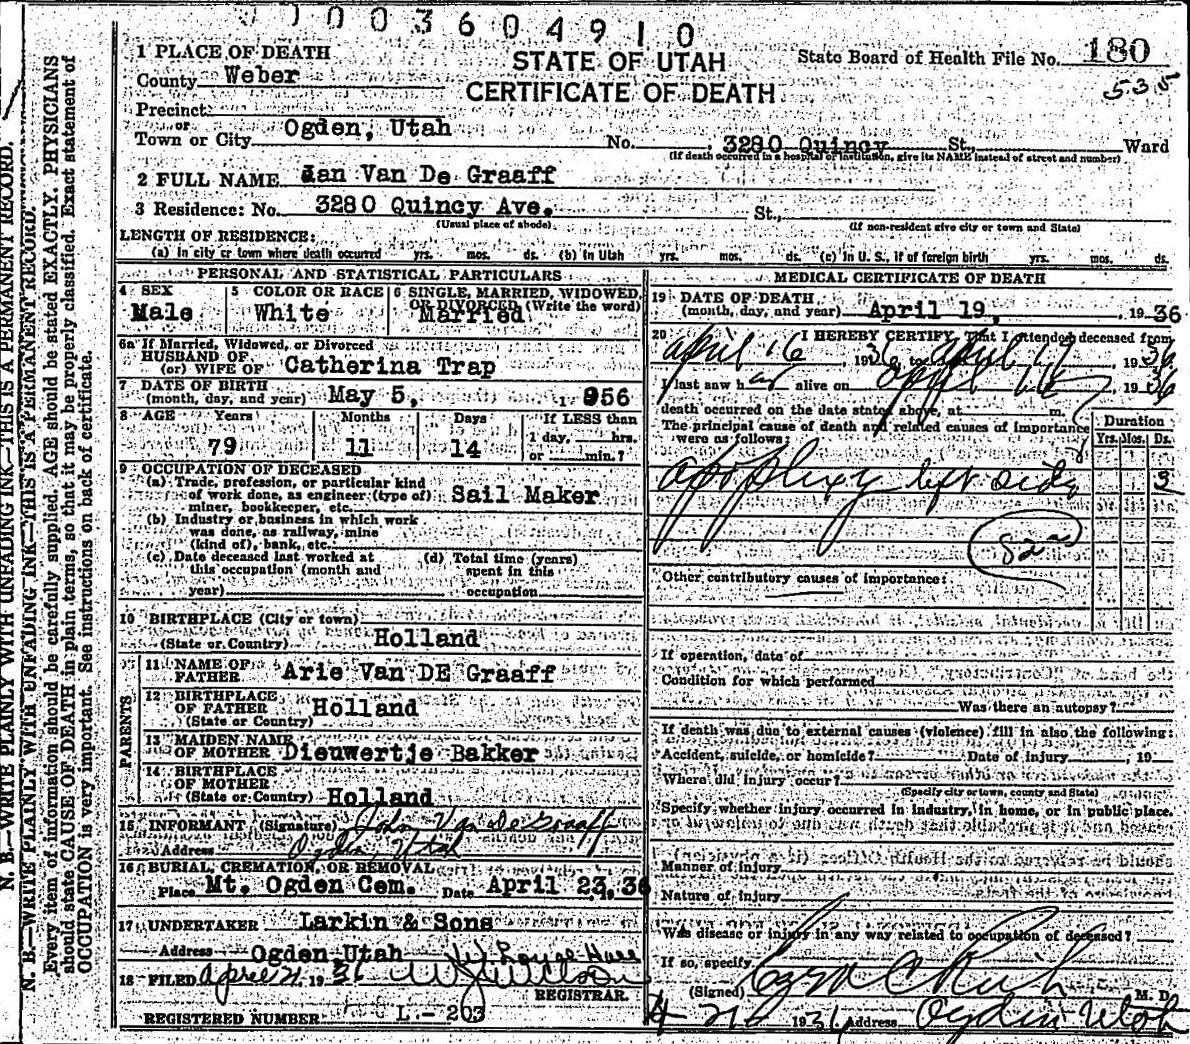 0003604910
1 PLACE OF DEATH
STATE OF UTAH
CERTIFICATE OF DEATH
State Board of Health File No. 180
535
County Weber
Precinct
or
Town or City Ogden, Utah No. 3280 Quincy St., Ward
(If death occurred in a hospital or institution, give its NAME instead of street and number)
2 FULL NAME Jan Van De Graaff
3 Residence: No. 3280 Quincy Ave. St.,
(Usual place of abode) (If non-resident give city or town and State)
LENGTH OF RESIDENCE:
(a) in city or town where death occurred yrs. mos. ds. (b) in Utah yrs. mos. ds. (c) in U. S., if of foreign birth yrs. mos. ds.
PERSONAL AND STATISTICAL PARTICULARS
4 SEX
Male
5 COLOR OR RACE
White
6 SINGLE, MARRIED, WIDOWED,
OR DIVORCED (Write the word)
Married
6a If Married, Widowed, or Divorced
HUSBAND OF
(or) WIFE OF Catherina Trap
7 DATE OF BIRTH
(month, day, and year) May 5, 1856
8 AGE Years Months Days If LESS than
79 11 14 1 day, hrs.
or min.?
9 OCCUPATION OF DECEASED
(a) Trade, profession, or particular kind
of work done, as engineer (type of) Sail Maker
miner, bookkeeper, etc.
(b) Industry or business in which work
was done, as railway, mine
(kind of), bank, etc.
(c) Date deceased last worked at
this occupation (month and
year)
(d) Total time (years)
spent in this
occupation
10 BIRTHPLACE (City or town)
(State or Country) Holland
PARENTS
11 NAME OF
FATHER Arie Van DE Graaff
12 BIRTHPLACE
OF FATHER Holland
(State or Country)
13 MAIDEN NAME
OF MOTHER Dieuwertje Bakker
14 BIRTHPLACE
OF MOTHER
(State or Country) Holland
15 INFORMANT (Signature) John Van De Graaff
Address Ogden, Utah
16 BURIAL, CREMATION, OR REMOVAL
Place Mt. Ogden Cem. Date April 23, 1936
17 UNDERTAKER Larkin & Sons
Address Ogden Utah
18 FILED April 21, 1936
REGISTRAR.
REGISTERED NUMBER L.-203
MEDICAL CERTIFICATE OF DEATH
19 DATE OF DEATH
(month, day, and year) April 19, 1936
20 I HEREBY CERTIFY, That I attended deceased from
April 16 1936 to April 1936
I last saw h alive on 1936
death occurred on the date stated above, at m.
The principal cause of death and related causes of importance
were as follows:
Duration
Yrs. Mos. Ds.
apoplexy left side 3
82
Other contributory causes of importance:
If operation, date of
Condition for which performed
Was there an autopsy?
If death was due to external causes (violence) fill in also the following:
Accident, suicide, or homicide? Date of injury , 19
Where did injury occur?
(Specify city or town, county and State)
Specify whether injury occurred in industry, in home, or in public place.
Manner of injury
Nature of injury
Was disease or injury in any way related to occupation of deceased?
If so, specify
(Signed) M. D.
1936 Address Ogden Utah
N. B.—WRITE PLAINLY WITH UNFADING INK—THIS IS A PERMANENT RECORD.
N. B.—WRITE PLAINLY WITH UNFADING INK—THIS IS A PERMANENT RECORD.
Every item of information should be carefully supplied. AGE should be stated EXACTLY. PHYSICIANS
should state CAUSE OF DEATH in plain terms, so that it may be properly classified. Exact statement of
OCCUPATION is very important. See instructions on back of certificate.